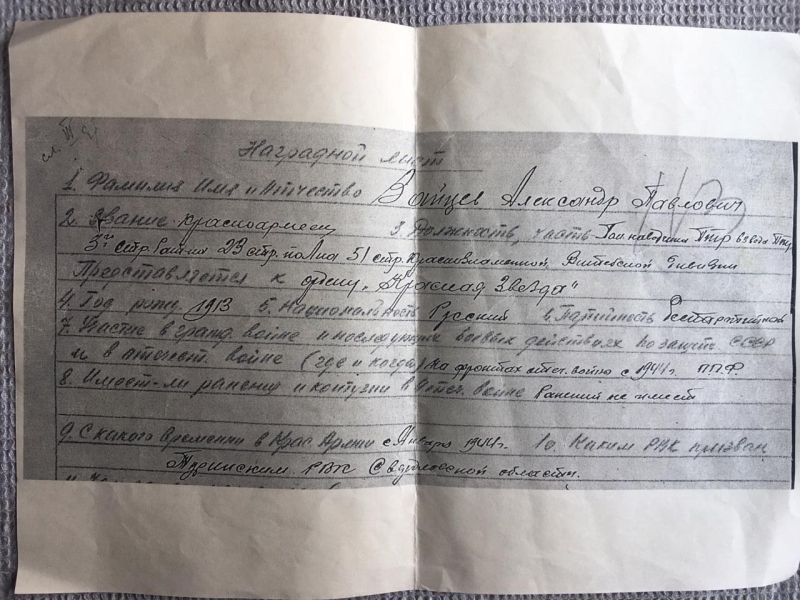 сл. III
Наградной лист
1. Фамилия Имя и Отчество Войцев Александр Павлович
2. Звание красноармеец 3. Должность, часть взвода Птр
3го стр. бат-на 23 стр. полка 51 стр. Краснознаменной, Витебской дивизии
Представляется к ордену "Красная Звезда"
4. Год рожд 1913 5. Национальность Русский 6. Партийность
7. Участие в гражд. войне и последующих боевых действиях по защите СССР
и в отечест. войне (где и когда) на фронтах отеч. войны с 1944 г. ПП.Ф.
8. Имеет-ли ранения и контузии в отеч. войне ранений не имеет
9. С какого времени в Крас. Армии с Января 1944 г. 10. Каким РВК призван
РВК Свердловской области.